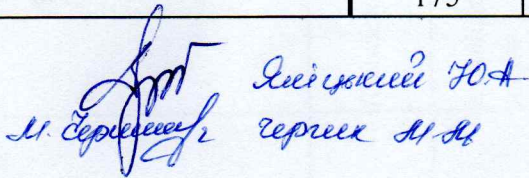 175
Яліцький Ю.А
М. Черник Черник М.М